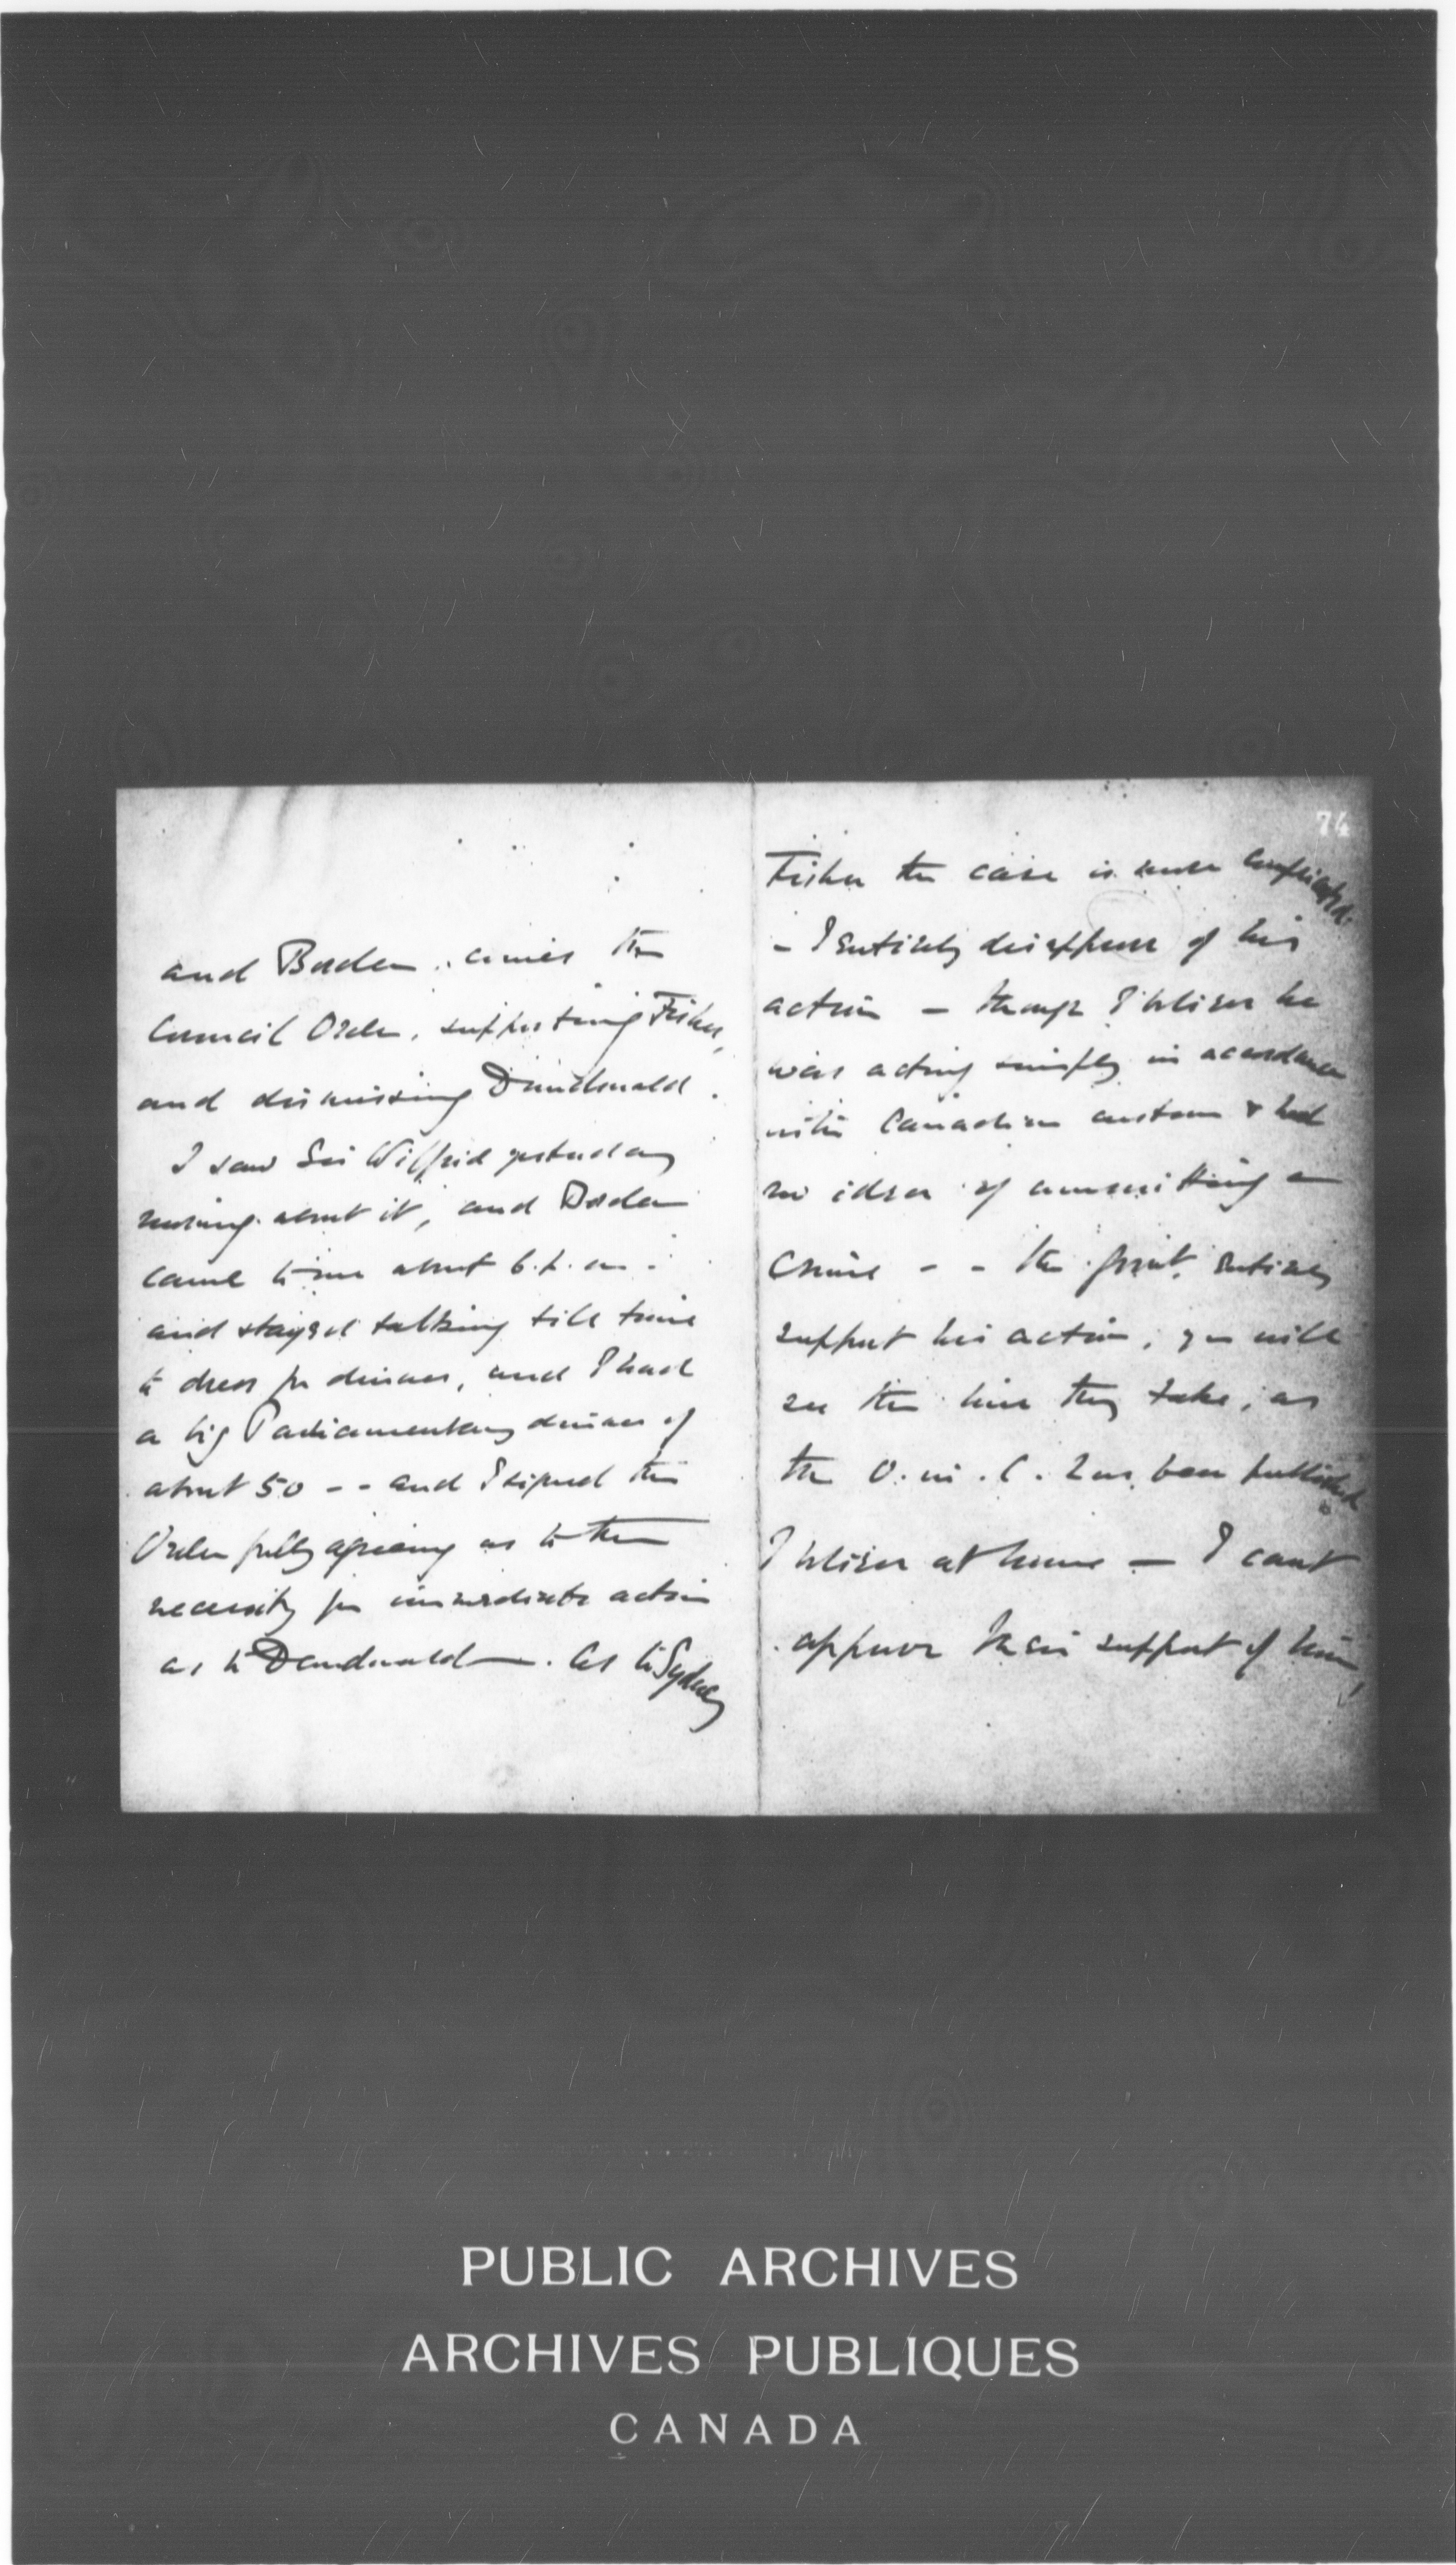 and Borden. comes the
Council Order, supporting Fisher,
and dismissing Dundonald.
I saw Sir Wilfrid yesterday
morning about it, and Borden
came to me about 6. p. m.
and stayed talking till time
to dress for dinner, and I had
a big Parliamentary dinner of
about 50 -- and I signed the
Order fully agreeing as to the
necessity for immediate action
as to Dundonald —. As to Sydney
74
Fisher the case is more complicated.
- I entirely disapprove of his
action — though I believe he
was acting simply in accordance
with Canadian custom & had
no idea of committing a
crime - - the Govt. entirely
support his action, you will
see the line they take, as
the O. in. C. has been published
I believe at home — I cant
approve their support of him,
PUBLIC ARCHIVES
ARCHIVES PUBLIQUES
CANADA